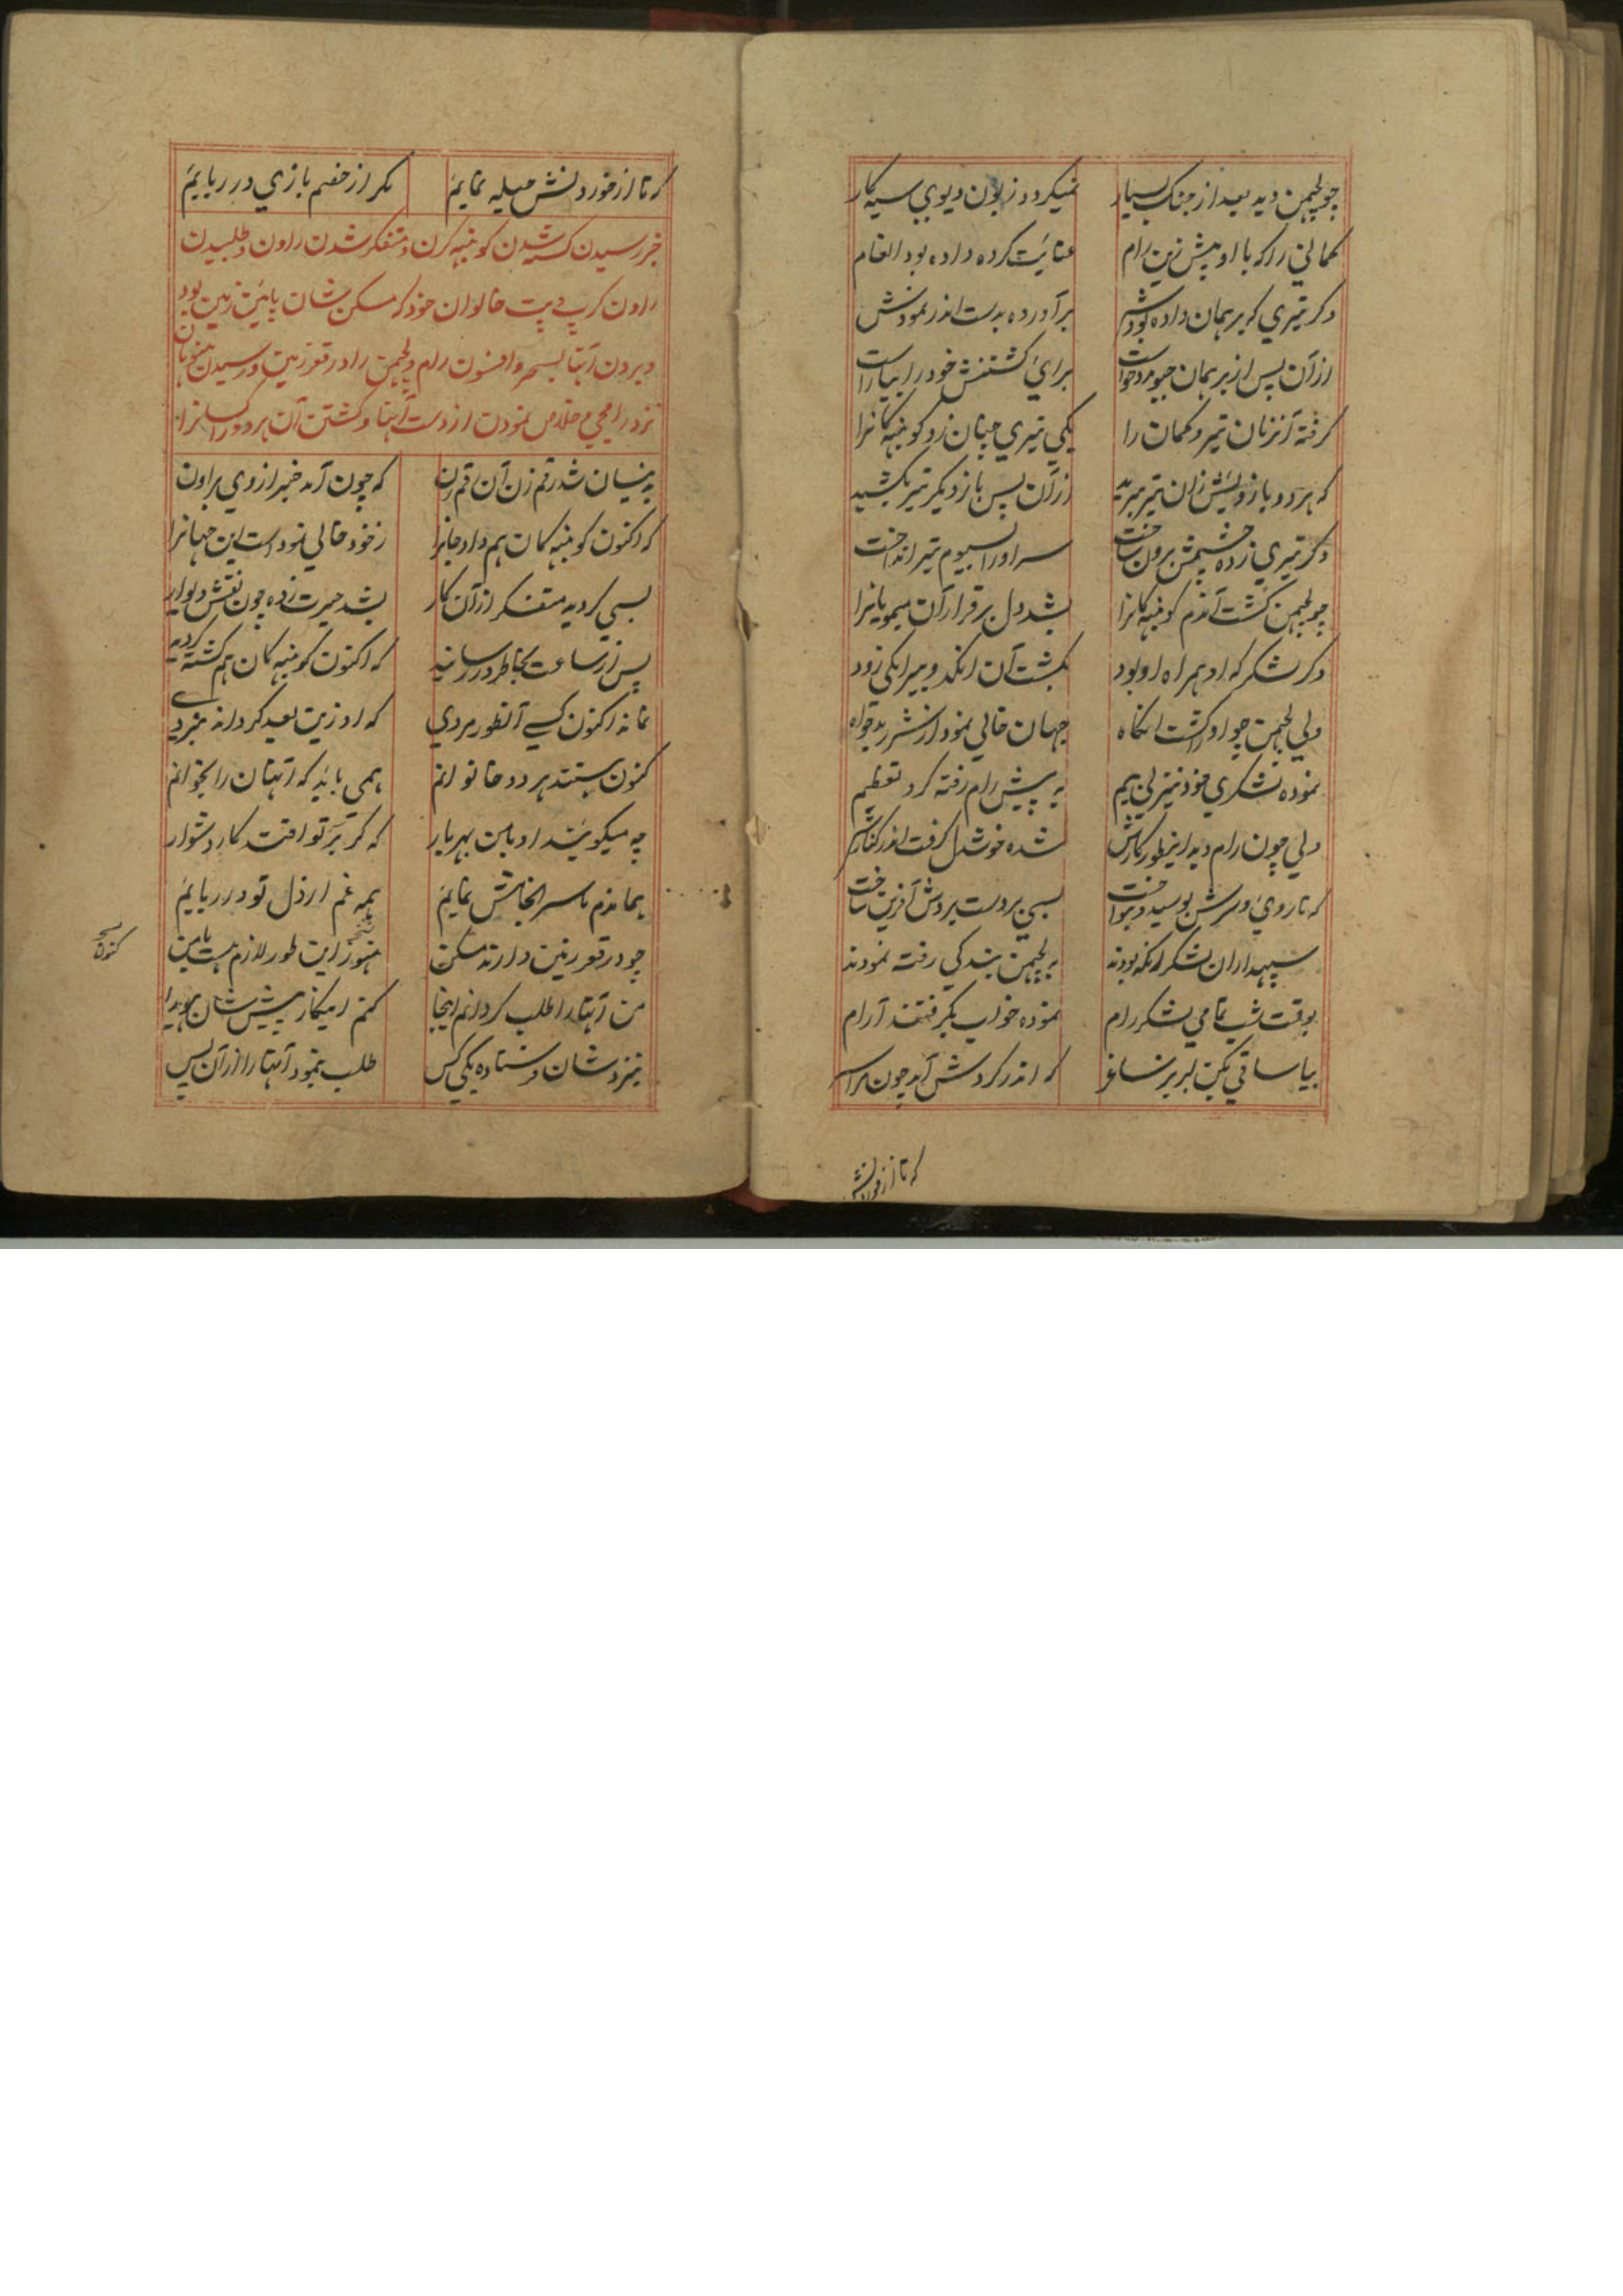 چو لچهمن دید بعد از جنک بسیار نمیکردد زبون دیوی سیه کار
کمانی را که با او پیش زین رام عنائیت کرده داده بود انعام
دکر تیری که برهمان داده بودش برآورده بدست اندر نمودش
ازآن پس از برهمان چو مرد خواست برائ کشتنش خود را بیاراست
کرفته آنزمان تیر و کمان را یکی تیری چنان زد کونبهه کانرا
که هردو بازویش زان تیر ببرید ازآن پس باز دیکر تیر بکشید
دکر تیری زده چشمش برون ساخت سر او را بسیوم تیر انداخت
چو لچهمن کشت آندم کونبهه کانرا بشد دل برقرار آن میمویانرا
دکر لشکر که او همراه او بود بکشت آن انکد و بیر انکی زود
ولی لچهمن چو او را کشت انکاه جهان خالی نمود از شر بدخواه
نموده لشکری خود نیز بی بیم به پیش رام رفته کرد تعظیم
ولی چون رام دید اینطور کارش شده خوشدل کرفت اندر کنارش
که تا روئ و سرش بوسید و بنواخت بسی بر دست بردش آفرین ساخت
سپهداران لشکر انکه بودند به لچهمن بندکی رفته نمودند
بوقت شب تمامی لشکر رام نموده خواب بکرفتند آرام
بیا ساقی بکن لبریز ساغر که اندر کردش آید چون مرا سر
که تا از خوردنش
که تا از خوردنش حیله نمایم مکر از خصم بازی در ربایم
خبر رسیدن کشته شدن کونبهه کرن و متفکر شدن راون و طلبیدن
راون کرپی دیت خالوان خود که مسکن شان پائین زمین بود
و بردن آنها بسحر و افسون رام و لچهمن را در قعر زمین و رسیدن هنونان
نزد رامجی و خلاص نمودن از دست آنها و کشتن آن هر دو کسانرا
بدینسان شد رقم زن آن قم زن که چون آمد خبر از وی براون
که اکنون کونبهه کان هم داد جانرا زخود خالی نمود است این جهانرا
بسی کردید متفکر ازآن کار بشد حیرت زده چون نقش دیوار
پس از ساعت بخاطر در رسانید که اکنون کونبهه کان هم کشته کردید
نمانه اکنون کسی آنطور مردی که او زین بعد کرداند نبردی
کنون هستند هر دو خالوانم همی باید که آنهان را بخوانم
چه میکویند او با من بهر بار که کر بر تو افتد کار دشوار
هماندم ما سرانجامش نمایم همه غم از دل تو در ربایم
چو در قعر زمین دارند مسکن هنوز این طور لازم هست با من
نسخه کنون
من آنها را طلب کردانم اینجا کنم این کار پیش شان هویدا
بنزد شان فرستاده یکی کس طلب بنمود آنها را ازآن پس